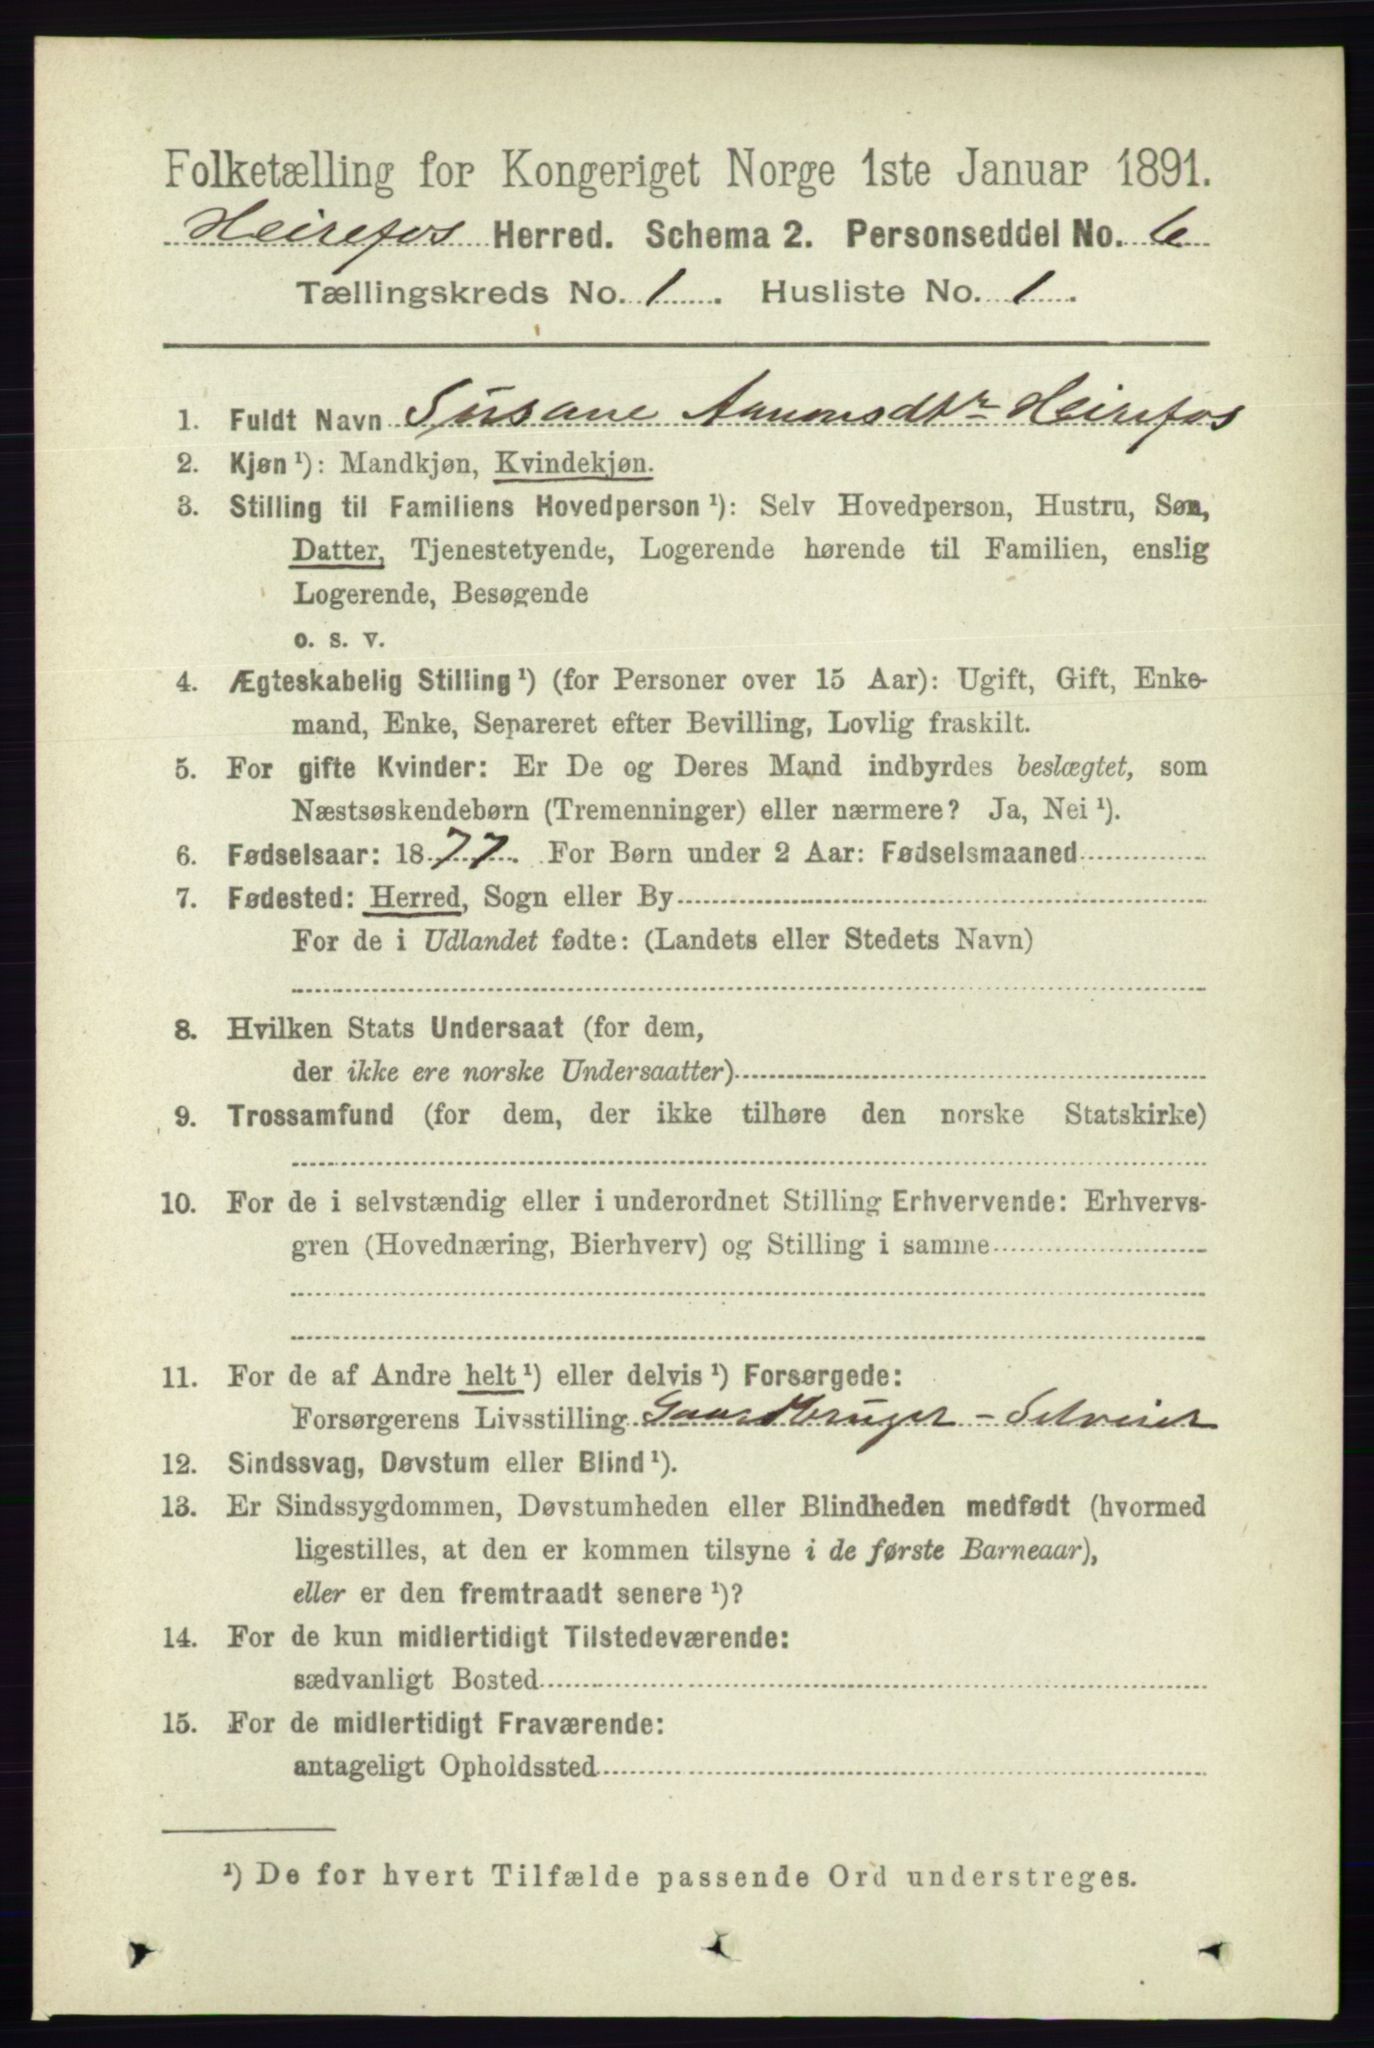 Folketælling for Kongeriget Norge 1ste Januar 1891.
Heirefos Herred. Schema 2. Personseddel No. 6
Tællingskreds No. 1. Husliste No. 1.
1. Fuldt Navn Susane Aanonsdtr Heirefos
2. Kjøn ¹): Mandkjøn, Kvindekjøn.
3. Stilling til Familiens Hovedperson ¹): Selv Hovedperson, Hustru, Søn,
Datter, Tjenestetyende, Logerende hørende til Familien, enslig
Logerende, Besøgende
o. s. v.
4. Ægteskabelig Stilling ¹) (for Personer over 15 Aar): Ugift, Gift, Enke-
mand, Enke, Separeret efter Bevilling, Lovlig fraskilt.
5. For gifte Kvinder: Er De og Deres Mand indbyrdes beslægtet, som
Næstsøskendebørn (Tremenninger) eller nærmere? Ja, Nei ¹).
6. Fødselsaar: 1877. For Børn under 2 Aar: Fødselsmaaned
7. Fødested: Herred, Sogn eller By
For de i Udlandet fødte: (Landets eller Stedets Navn)
8. Hvilken Stats Undersaat (for dem,
der ikke ere norske Undersaatter)
9. Trossamfund (for dem, der ikke tilhøre den norske Statskirke)
10. For de i selvstændig eller i underordnet Stilling Erhvervende: Erhvervs-
gren (Hovednæring, Bierhverv) og Stilling i samme
11. For de af Andre helt ¹) eller delvis ¹) Forsørgede:
Forsørgerens Livsstilling Gaardbruger - Selveier
12. Sindssvag, Døvstum eller Blind ¹).
13. Er Sindssygdommen, Døvstumheden eller Blindheden medfødt (hvormed
ligestilles, at den er kommen tilsyne i de første Barneaar),
eller er den fremtraadt senere ¹)?
14. For de kun midlertidigt Tilstedeværende:
sædvanligt Bosted
15. For de midlertidigt Fraværende:
antageligt Opholdssted
¹) De for hvert Tilfælde passende Ord understreges.